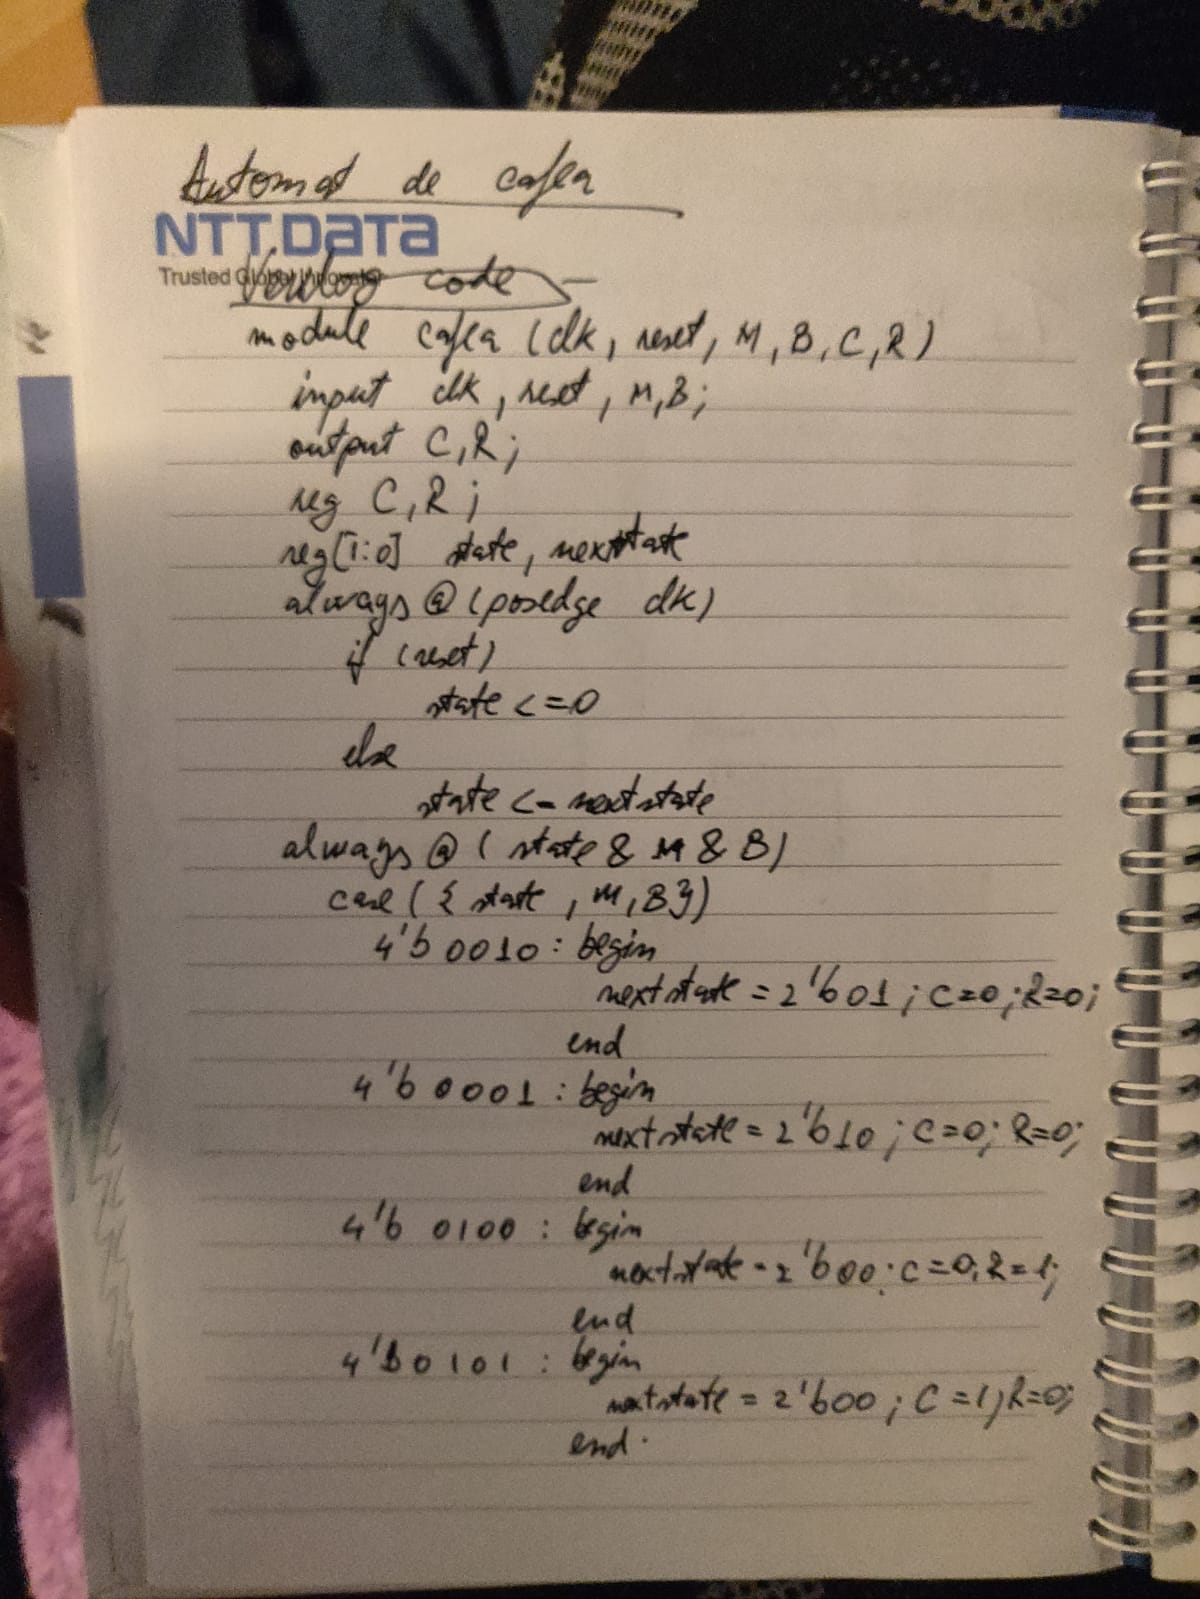 Automat de cafea
NTT DATA
Trusted Global Innovator
Verilog code
module cafea (clk, reset, M, B, C, R)
input clk, reset, M, B;
output C, R;
reg C, R;
reg [1:0] state, nextstate
always @ (posedge clk)
if (reset)
state <= 0
else
state <= nextstate
always @ ( state & M & B)
case ( { state , M, B})
4'b 0010 : begin
nextstate = 2'b01 ; C=0 ; R=0;
end
4'b 0001 : begin
nextstate = 2'b10 ; C=0; R=0;
end
4'b 0100 : begin
nextstate = 2'b00 ; C=0, R=1;
end
4'b0101 : begin
nextstate = 2'b00 ; C=1, R=0;
end